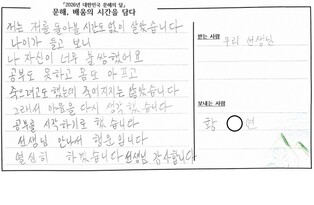 「2026년 대한민국 문해의 달」
문해, 배움의 시간을 담다
저는 저를 돌아볼 시간도 없이 살았습니다
나이가 들고 보니
나 자신이 너무 불쌍했어요
공부도 못하고 몸도 아프고
죽으려고도 했는데 죽어지지는 않았습니다
그래서 마음을 다시 생각했습니다
공부를 시작하기로 했습니다
선생님 만나서 행운입니다
열심히 하겠습니다 선생님 감사합니다
받는 사람
우리 선생님
보내는 사람
황 연